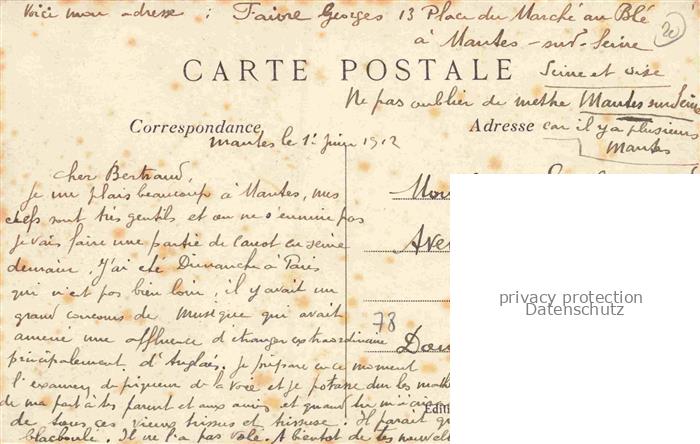 Voici mon adresse : Faivre Georges 13 Place du Marché au Blé
à Mantes-sur-Seine
20
CARTE POSTALE
Seine et oise
Ne pas oublier de mettre Mantes sur Seine
Correspondance
Adresse
car il y a plusieurs
Mantes
Mantes le 1er Juin 1912
cher Bertrand,
Je me plais beaucoup à Mantes, mes
chefs sont très gentils et on ne s'ennuie pas
je vais faire une partie de canot en seine
demain, J'ai été Dimanche à Paris
qui n'est pas bien loin, il y avait un
grand concours de Musique qui avait
amené une affluence d'étrangers extraordinaire
principalement d'Anglais. je prépare en ce moment
l'examen de piqueur de la voie et je potasse dur les
de ma part à tes parent et aux amis et quand tu
de tous ces vieux Il parait
blackboulé. Il ne l'a pas volé. A bientôt de tes nouvelles
78
Editi
privacy protection
Datenschutz